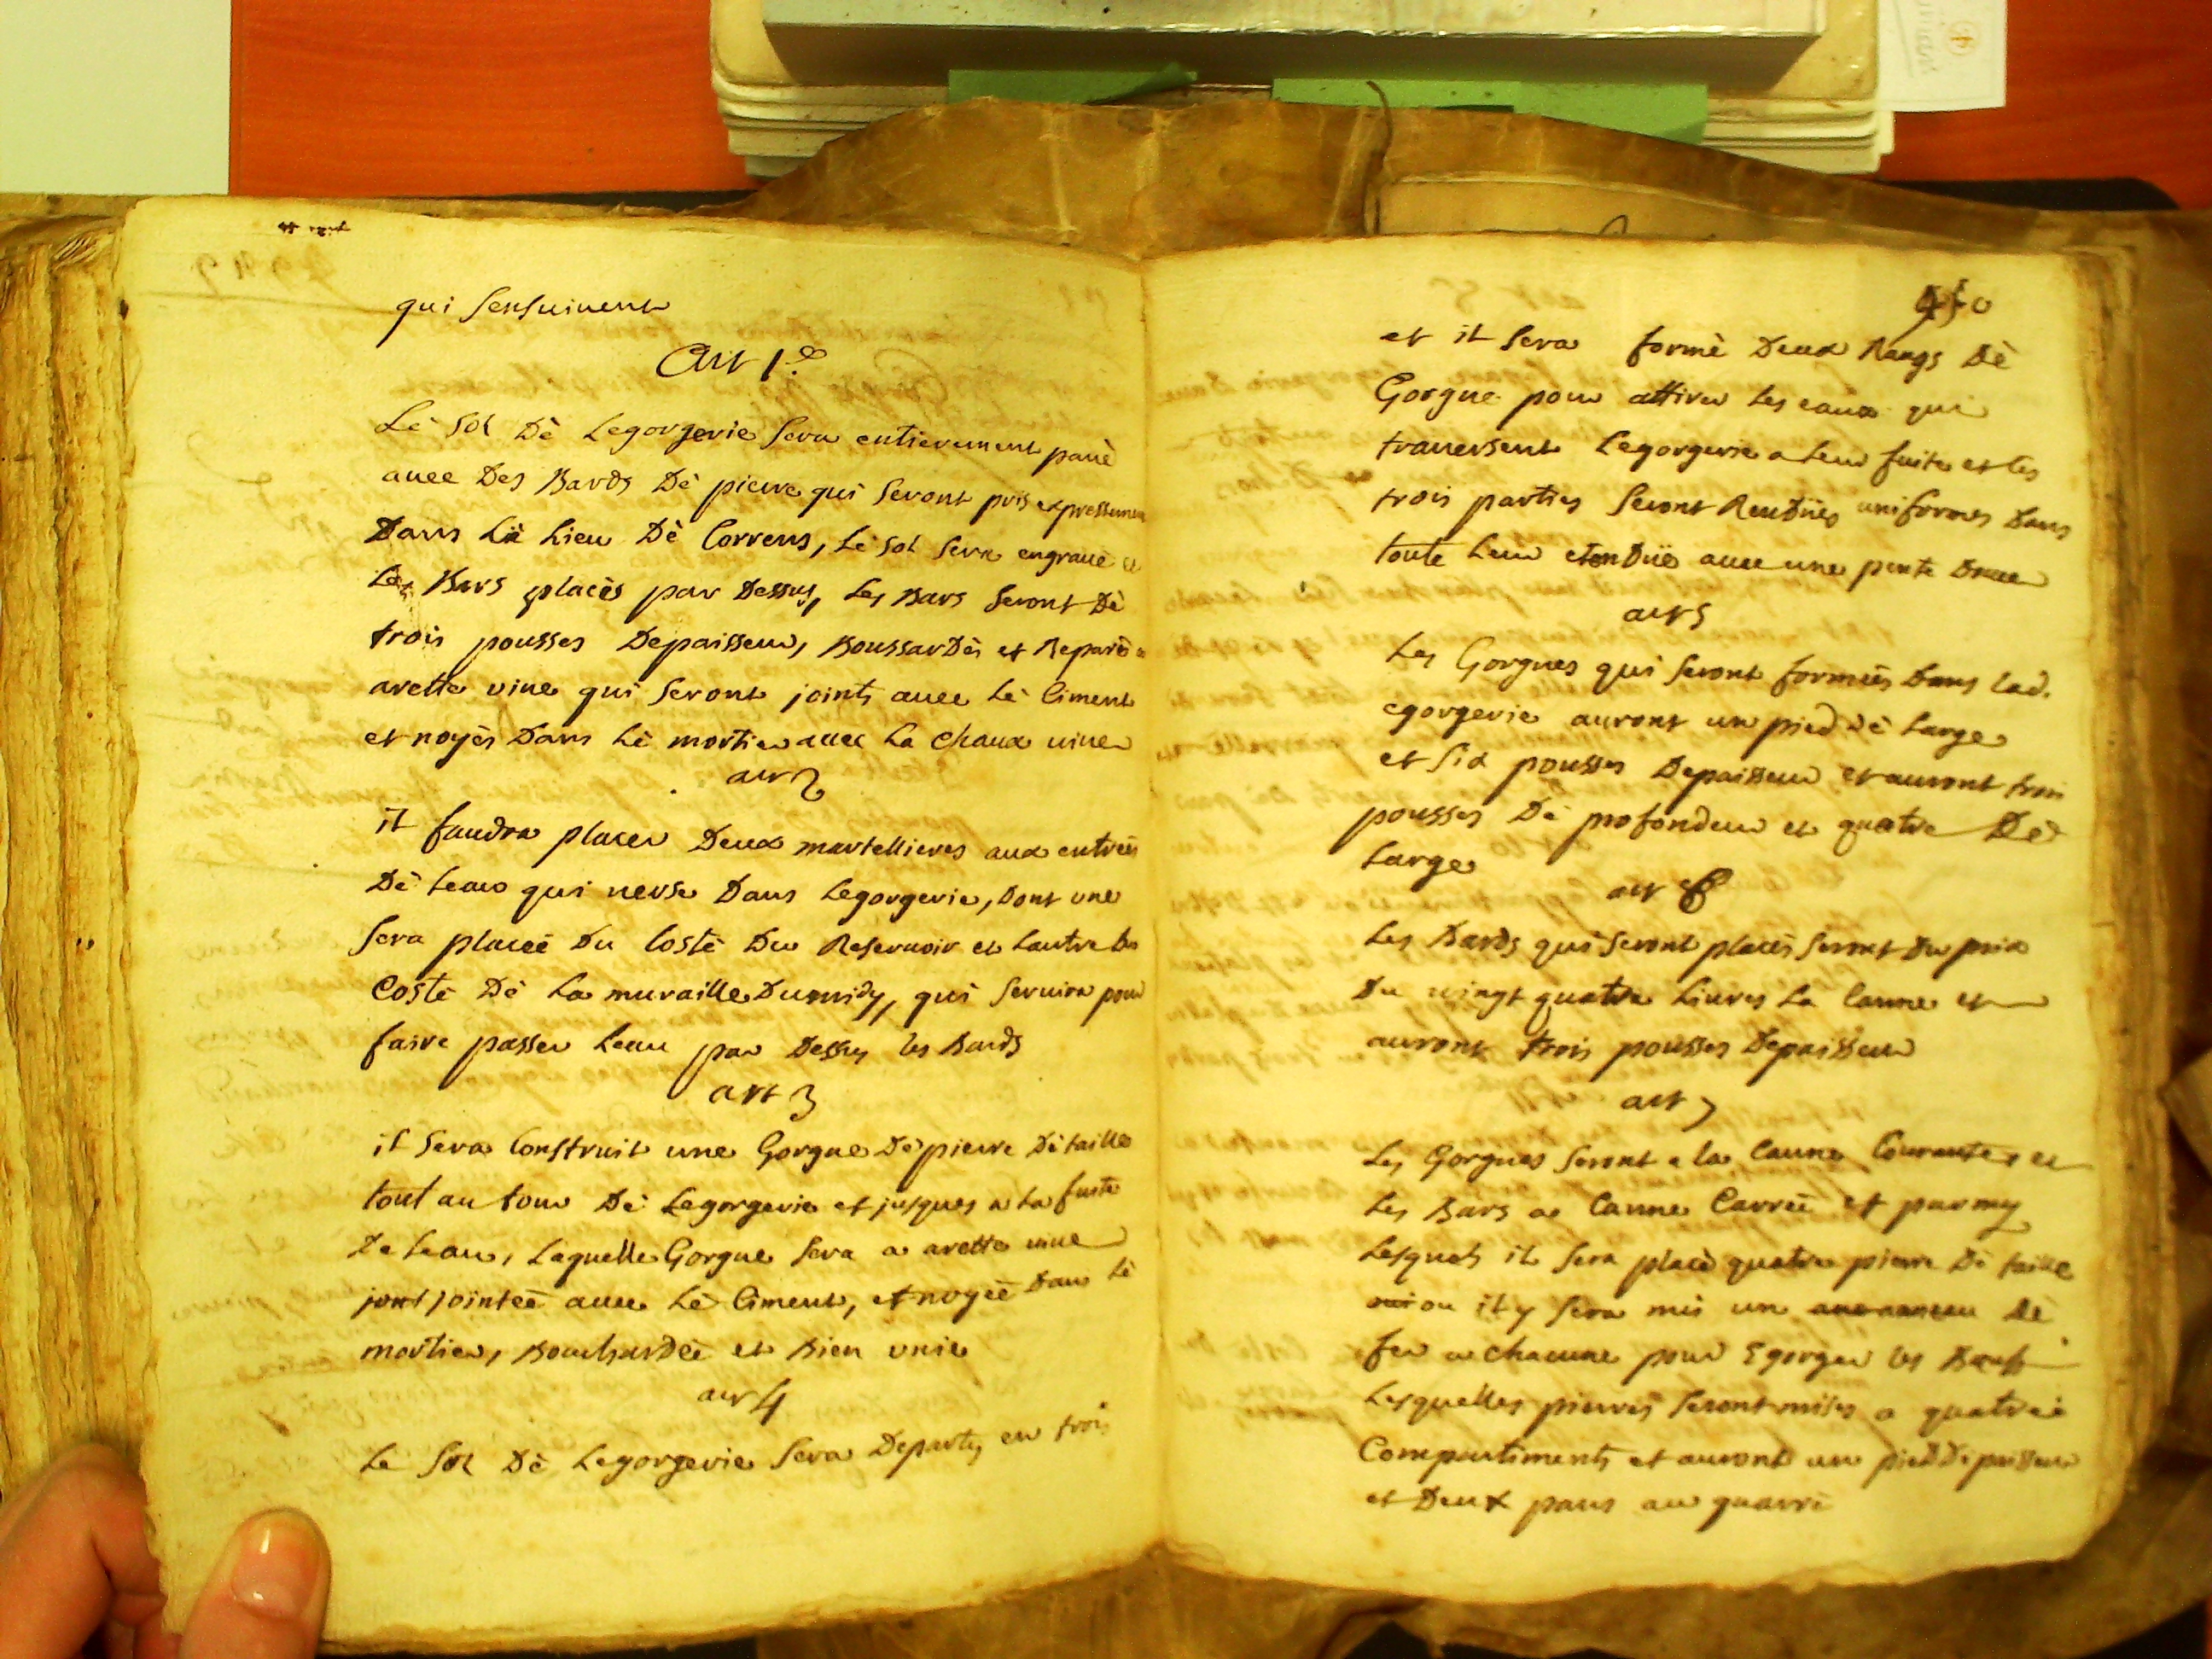 qui sensuivent
Art 1.e
Le sol dè Legorgerie sera entierement pavè
avec des Bards dè pierre qui seront pris expressement
Dans Le Lieu dè Correns, Le sol sera engravè et
Les Bars placès par dessus, Les Bars seront dè
trois pousses Depaisseur, Boussardès et Reparès a
arette vive qui seront joints avec Lè Ciment
et noyès Dans Lè mortier avec La chaux vive
art 2
il faudra placer Deux martellieres aux entrèes
Dè Leau qui verse Dans Legorgerie, Dont une
sera placeè Du Costè Du Reservoir et Lautre Du
Costè Dè La muraille Du midy, qui servira pour
faire passer Leau par Dessus les Bards
art 3
il sera Construit une Gorgue Dè pierre Dè taille
tout au tour Dè Legorgerie et jusques a La fuite
De Leau, Laquelle Gorgue sera a arette vive
jointeè avec Lè Ciment, et noyeè Dans Lè
mortier, Bouchardeè et Bien unie
art 4
Le Sol Dè Legorgerie sera Departy en trois
450
et il sera formè Deux Rangs Dè
Gorgue pour attirer Les eaux qui
traversent Legorgerie a Leur fuite et les
trois parties seront Rendües uniformes Dans
toute Leur etendüe avec une pente Douce
art 5
Les Gorgues qui seront formeès Dans lad.
egorgerie auront un pied Dè Large
et six pousses Depaisseur et auront trois
pousses Dè profondeur et quatre Dè
Large
art 6
Les Bards qui seront placès seront Du prix
Du vingt quatre Livres La Canne et
auront trois pousses Depaisseur
art 7
Les Gorgues seront a la Canne Courante et
Les Bars a Canne Carreè et parmy
Lesquels il sera placè quatre pierre Dè taille
ou il y sera mis un anneau Dè
fer a chacune pour Egorger les Bœufs
Lesquelles pierres seront mises a quatre
Compartiments et auront un pied Depaisseur
et Deux pans au quarrè